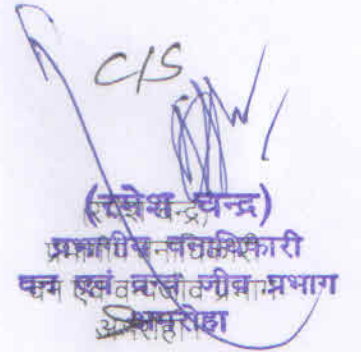 C/S
(रमेश चन्द्र)
प्रभागीय वनाधिकारी
वन एवं वन्य जीव प्रभाग
अमरोहा